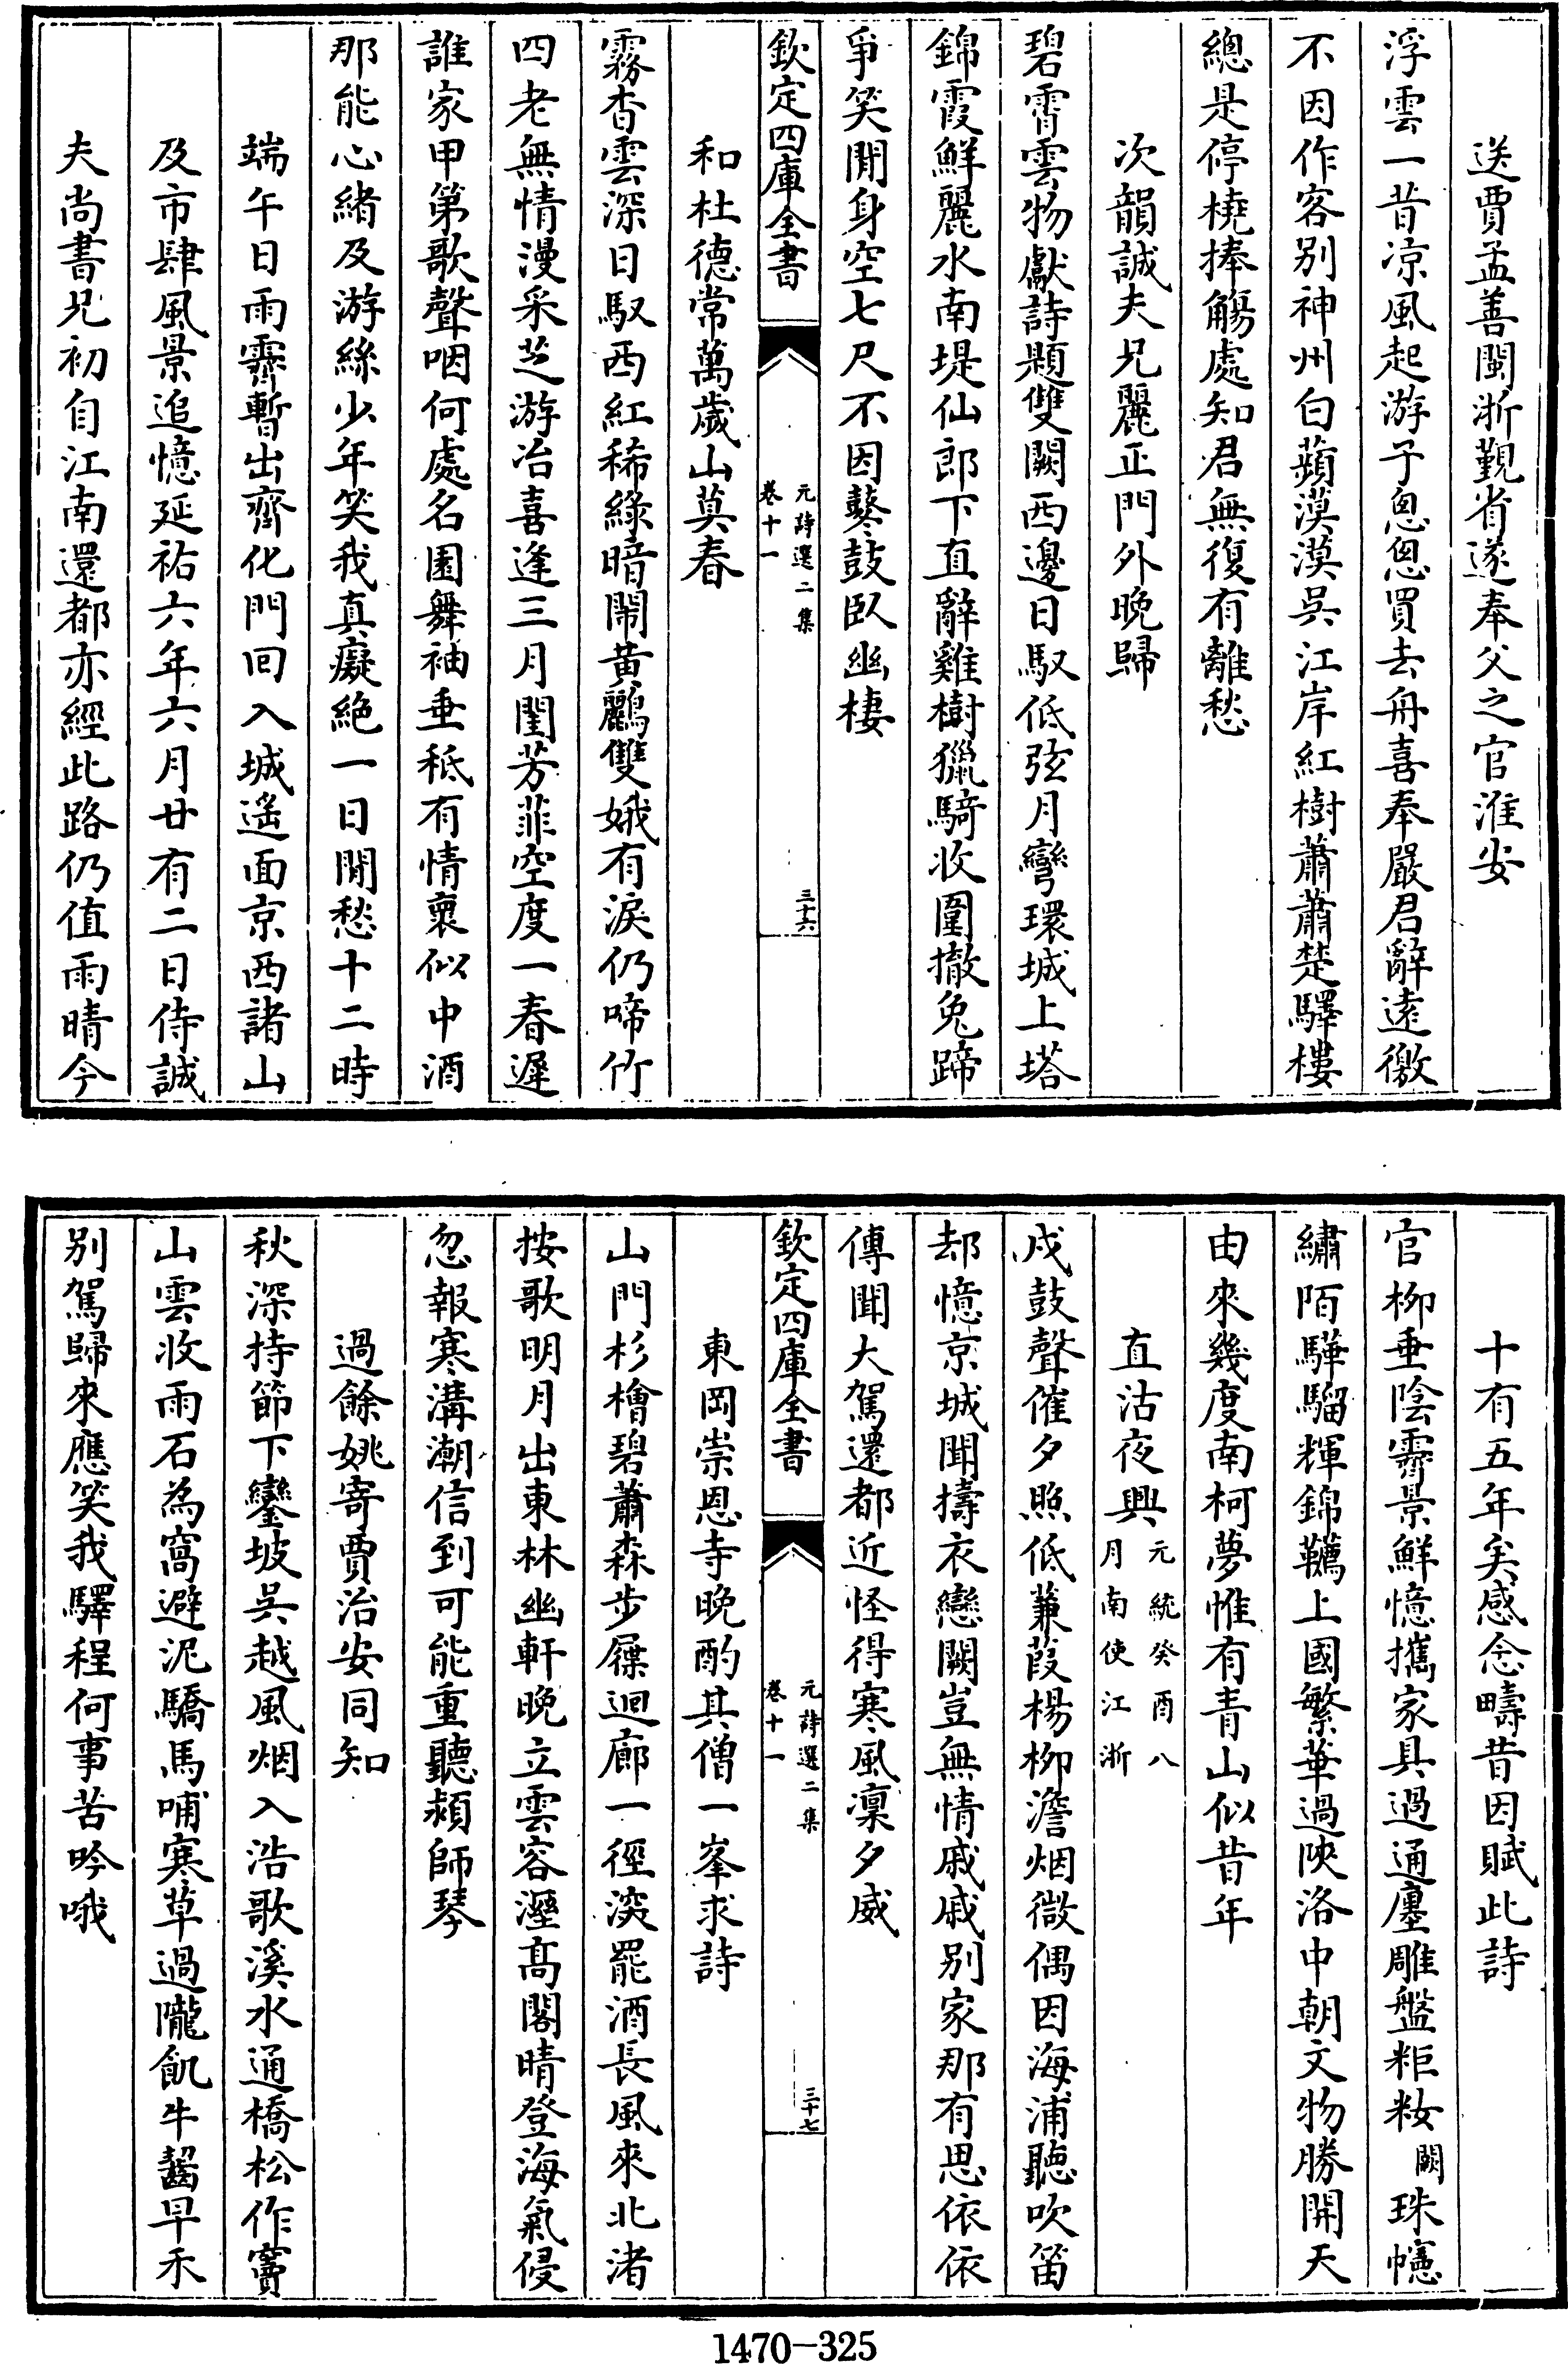 送賈孟善閩浙覲省遂奉父之官淮安
浮雲一昔凉風起游子怱怱買去舟喜奉嚴君辭遠徼
不因作客别神州白蘋漠漠吳江岸紅樹蕭蕭楚驛樓
總是停橈捧觴處知君無復有離愁
次韻誠夫兄麗正門外晚歸
碧霄雲物獻詩題雙闕西邊日馭低弦月彎環城上塔
錦霞鮮麗水南堤仙郎下直辭雞樹獵騎收圍撤兔蹄
爭笑閒身空七尺不因鼛鼓臥幽棲
欽定四庫全書
元詩選二集
卷十一
三十六
和杜德常萬歲山莫春
霧杳雲深日馭西紅稀綠暗鬧黄鸝雙娥有淚仍啼竹
四老無情漫采芝游冶喜逢三月閏芳菲空度一春遲
誰家甲第歌聲咽何處名園舞袖垂秪有情褱似中酒
那能心緒及游絲少年笑我真癡絶一日閒愁十二時
端午日雨霽暫出齊化門回入城遥面京西諸山
及市肆風景追憶延祐六年六月廿有二日侍誠
夫尚書兄初自江南還都亦經此路仍值雨晴今
十有五年矣感念疇昔因賦此詩
官柳垂陰霽景鮮憶攜家具過通廛雕盤粔籹闕珠幰
繡陌驊騮輝錦韉上國繁華過陜洛中朝文物勝開天
由來幾度南柯夢惟有青山似昔年
直沽夜興元統癸酉八
月南使江浙
戍鼓聲催夕照低蒹葭楊柳澹烟微偶因海浦聽吹笛
却憶京城聞擣衣戀闕豈無情戚戚别家那有思依依
傳聞大駕還都近怪得寒風凜夕威
欽定四庫全書
元詩選二集
卷十一
三十七
東岡崇恩寺晚酌其僧一峯求詩
山門杉檜碧蕭森步屧迴廊一徑深罷酒長風來北渚
按歌明月出東林幽軒晚立雲容溼髙閣晴登海氣侵
忽報寒溝潮信到可能重聽潁師琴
過餘姚寄賈治安同知
秋深持節下鑾坡吳越風烟入浩歌溪水通橋松作竇
山雲收雨石為窩避泥驕馬哺寒草過隴飢牛齧早禾
别駕歸來應笑我驛程何事苦吟哦
1470-325